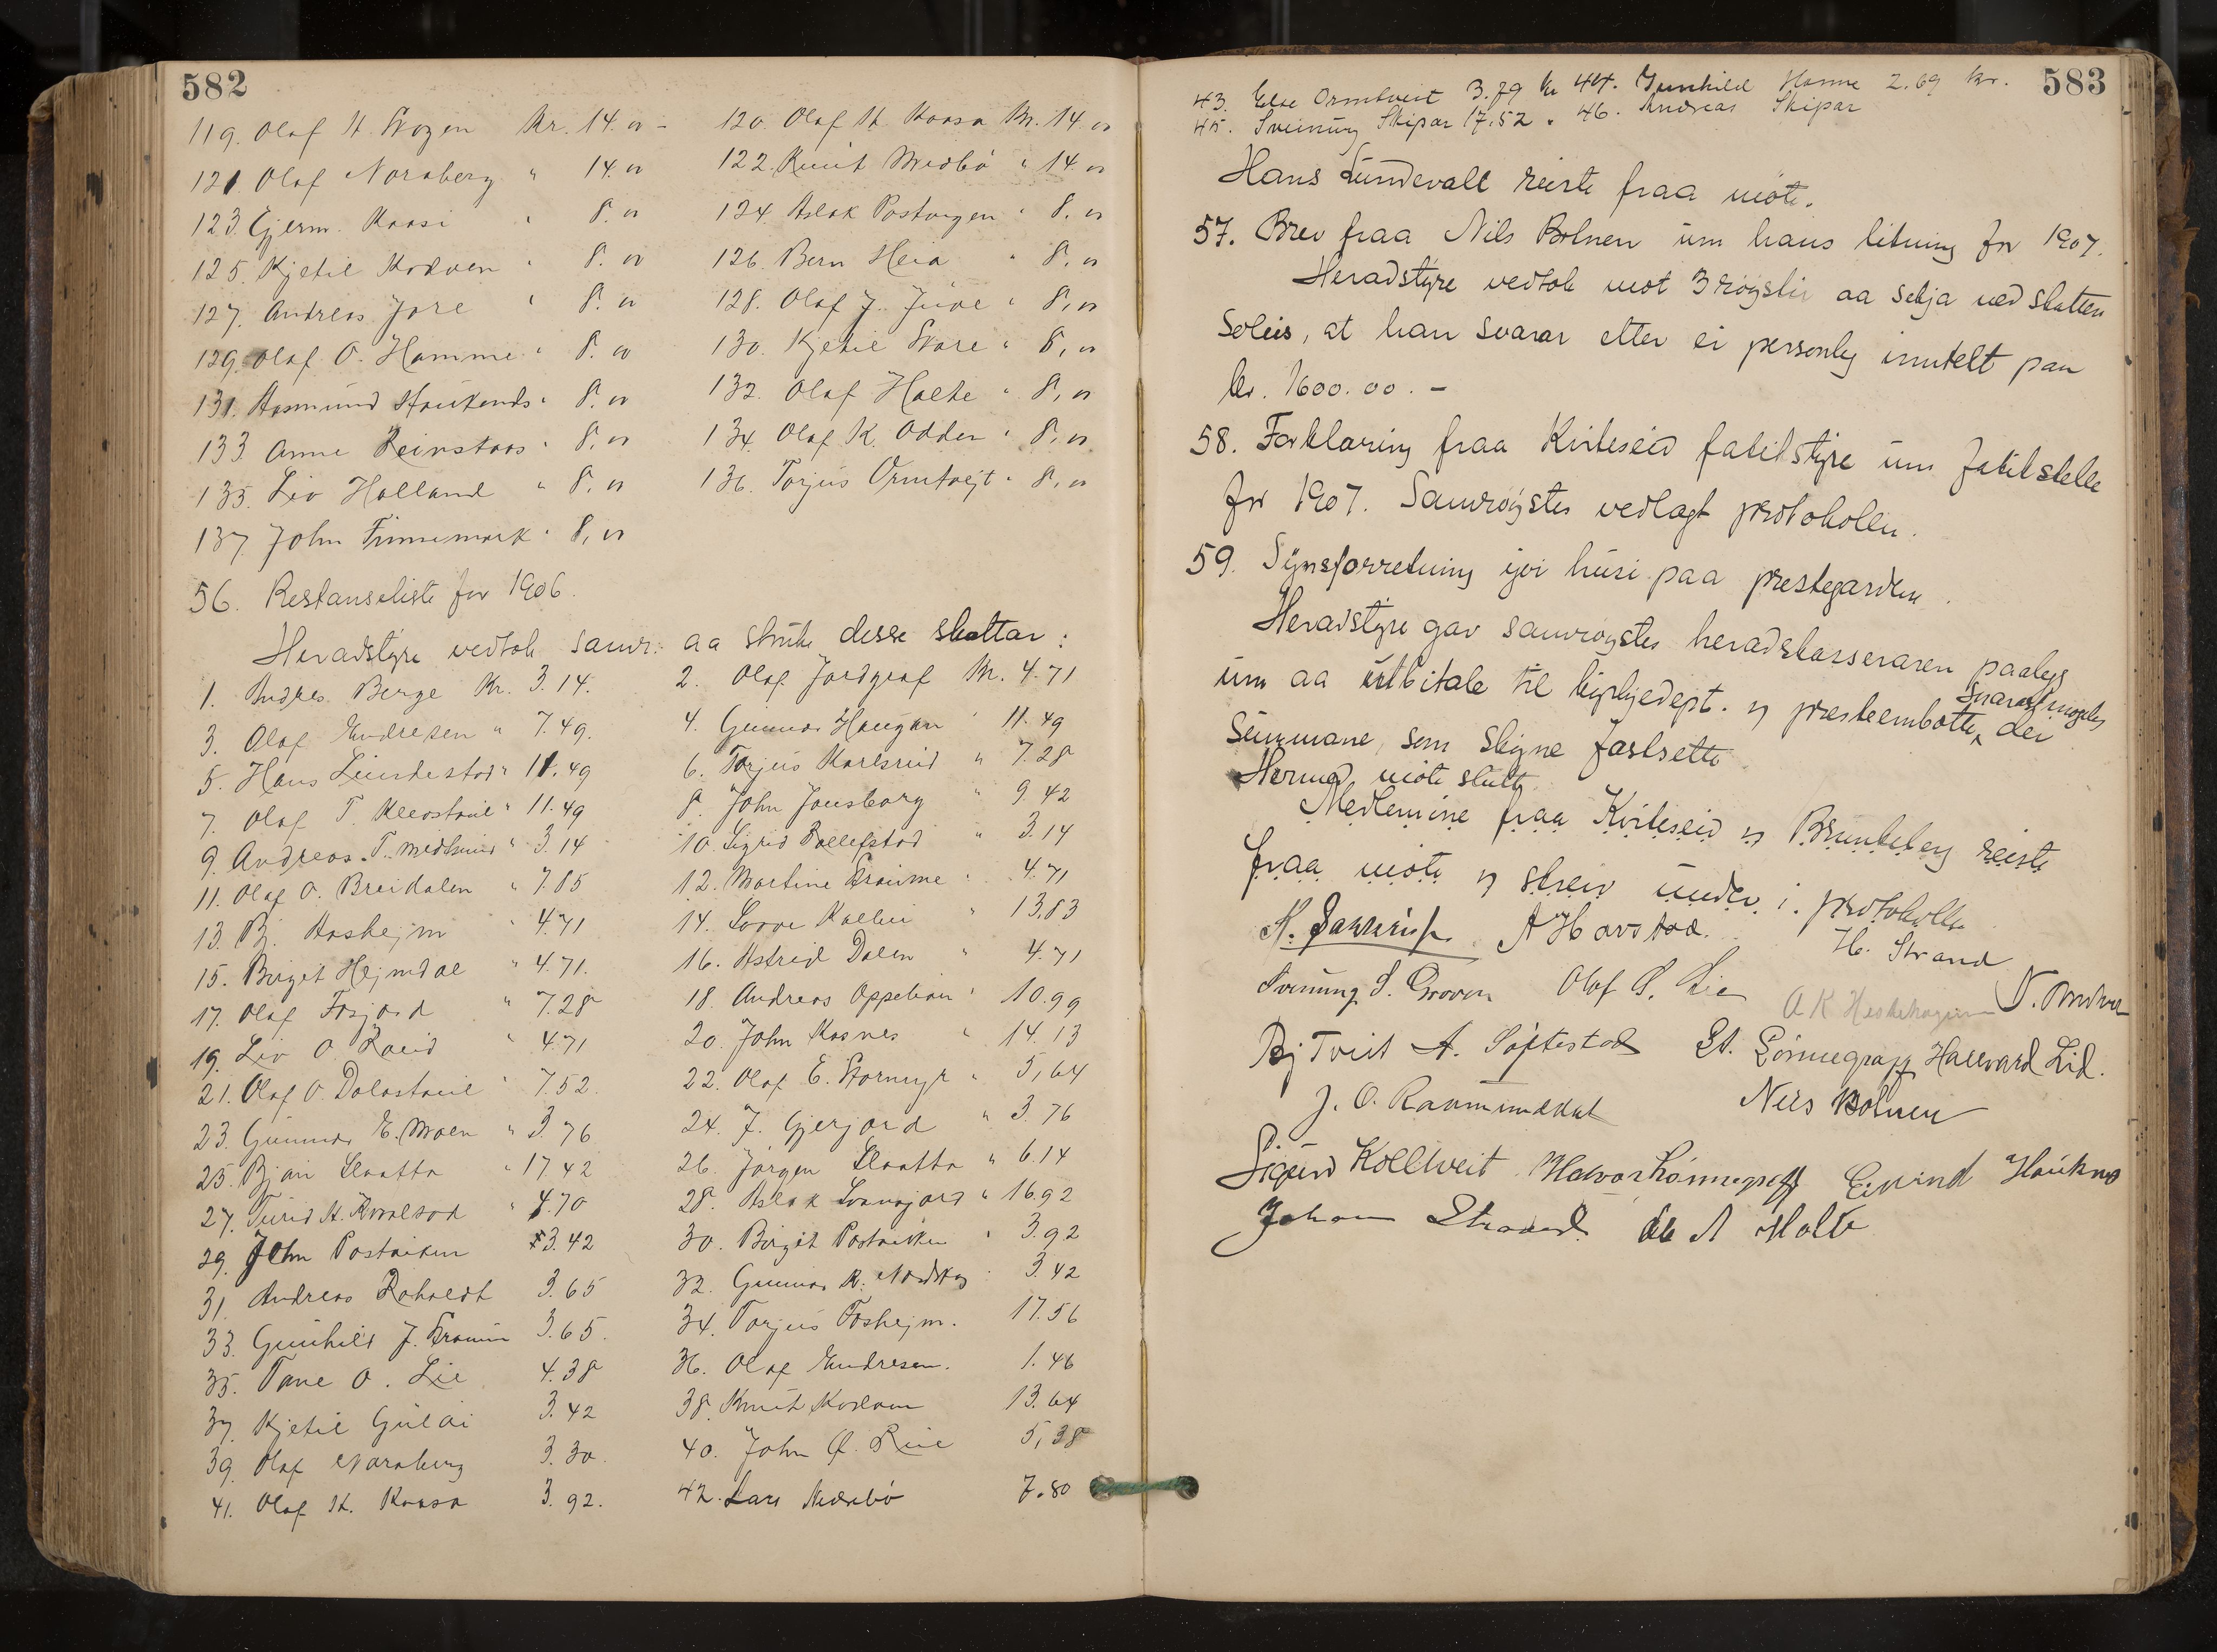 582
119. Olaf H. Skogen Kr. 14.00 - 120. Olaf H. Kaasa Kr. 14.00
121. Olaf Naraberg " 14.00 122. Knut Midbö " 14.00
123. Gjerm. Kaasi " 8.00 124. Aslak Postvegen " 8.00
125. Kjetil Kodven " 8.00 126. Bern Heia " 8.00
127. Andreas Jore " 8.00 128. Olaf J. Juve " 8,00
129. Olaf O. Hamme " 8.00 130. Kjetil Skare " 8,00
131. Aasmund Haukands " 8.00 132. Olaf Holte " 8,00
133 Anne Reinstaas " 8.00 134. Olaf K. Odden " 8,00
135. Liv Holland " 8.00 136. Torjus Ormtvejt " 8,00
137. John Finnemark " 8,00
56. Restanseliste for 1906.
Heradstyre vedtok samr: aa stryke desse skattar:
1. Andres Berge Kr. 3.14. 2. Olaf Jordgraf Kr. 4.71
3. Olaf Endresen " 7.49. 4. Gunnar Haugan " 11.49
5. Hans Lindestad " 11.49 6. Torjus Karlsrud " 7.28
7. Olaf T. Kleostaul " 11.49 8. John Jonsborg " 9.42
9. Andreas T. Midhund " 3.14 10. Sigrid Rollefstad " 3.14
11. Olaf O. Breidalen " 7.85 12. Martine Traume " 4.71
13. Bj. Aasheim " 4.71 14. Kallui " 13,83
15. Birgit Hejmdal " 4.71. 16. Astrid Dalen " 4.71
17. Olaf Fosjord " 7.28 18. Andreas Oppebøen " 10.99
19. Liv O. Roeid " 4.71 20. John Kosnes " 14.13
21. Olaf O. Dalastaul " 7.52. 22. Olaf E. Stormyr " 5,64
23. Gunnar E. Moen " 3.76 24. J. Gjerjord " 3.76
25. Bjøn Slaatta " 17 42 26. Jørgen Slaatta " 6.14
27. Turid H. Kvalsod " 4.70 28. Aslak Svanajord " 16.92
29. John Postmiken 3.42 30. Birgit Postmiken " 3.92
31. Andreas Roholdt 3.65 32. Gunnar K. Nordskog 3.42
33. Gunhild J. Braum 3.65. 34. Torjus Fosheim. 17.56
35. Tone O. Lie 4.38 36. Olaf Endresen. 1.46
37. Kjetil Guloi 3.42 38. Knut Kodven 13.64
39. Olaf Naraberg 3.30. 40. John Ø. Rui 5,38
41. Olaf H. Kaasa 3.92. 42. Lars Nedrebö 7.80
583
43. Else Ormtveit 3.79 kr 44. Gunhild Homme 2.69 kr.
45. Sveinung Skipar 17.52 " 46. Andreas Skipar
Hans Lundevall reiste fraa møte.
57. Brev fraa Nils Bolnen um hans likning for 1907.
Heradstyre vedtok mot 3 røyster aa setja ned skatten
soleis, at han svarar etter ei personleg inntekt paa
kr. 1600.00. -
58. Forklaring fraa Kviteseid fatikstyre um fatikstelle
for 1907. Samrøystes vedlagt protokollen.
59. Synsforretning yvi husi paa prestegarden.
Heradstyre gav samrøystes heradskasseraren paalegg
um aa utbitale til kyrkjedept. og presteembætte snarast mogeleg dei
summane, som skyne fastsette
Hermed møte slutt.
Medlemine fraa Kviteseid og Brunkeberg reiste
fraa møte og skreiv under i protokollen
A Havstad. H. Strand
Sveinung S. Groven Olaf S. Lie
Bj Tveit A. Softestad St. Lönnegrapp Hallvard Lid.
J. O. Raamunddal Nils Bolnen
Sigurd Kolltveit Halvor Lönnegraff Eivind Hauknes
Johan Strand A Holte